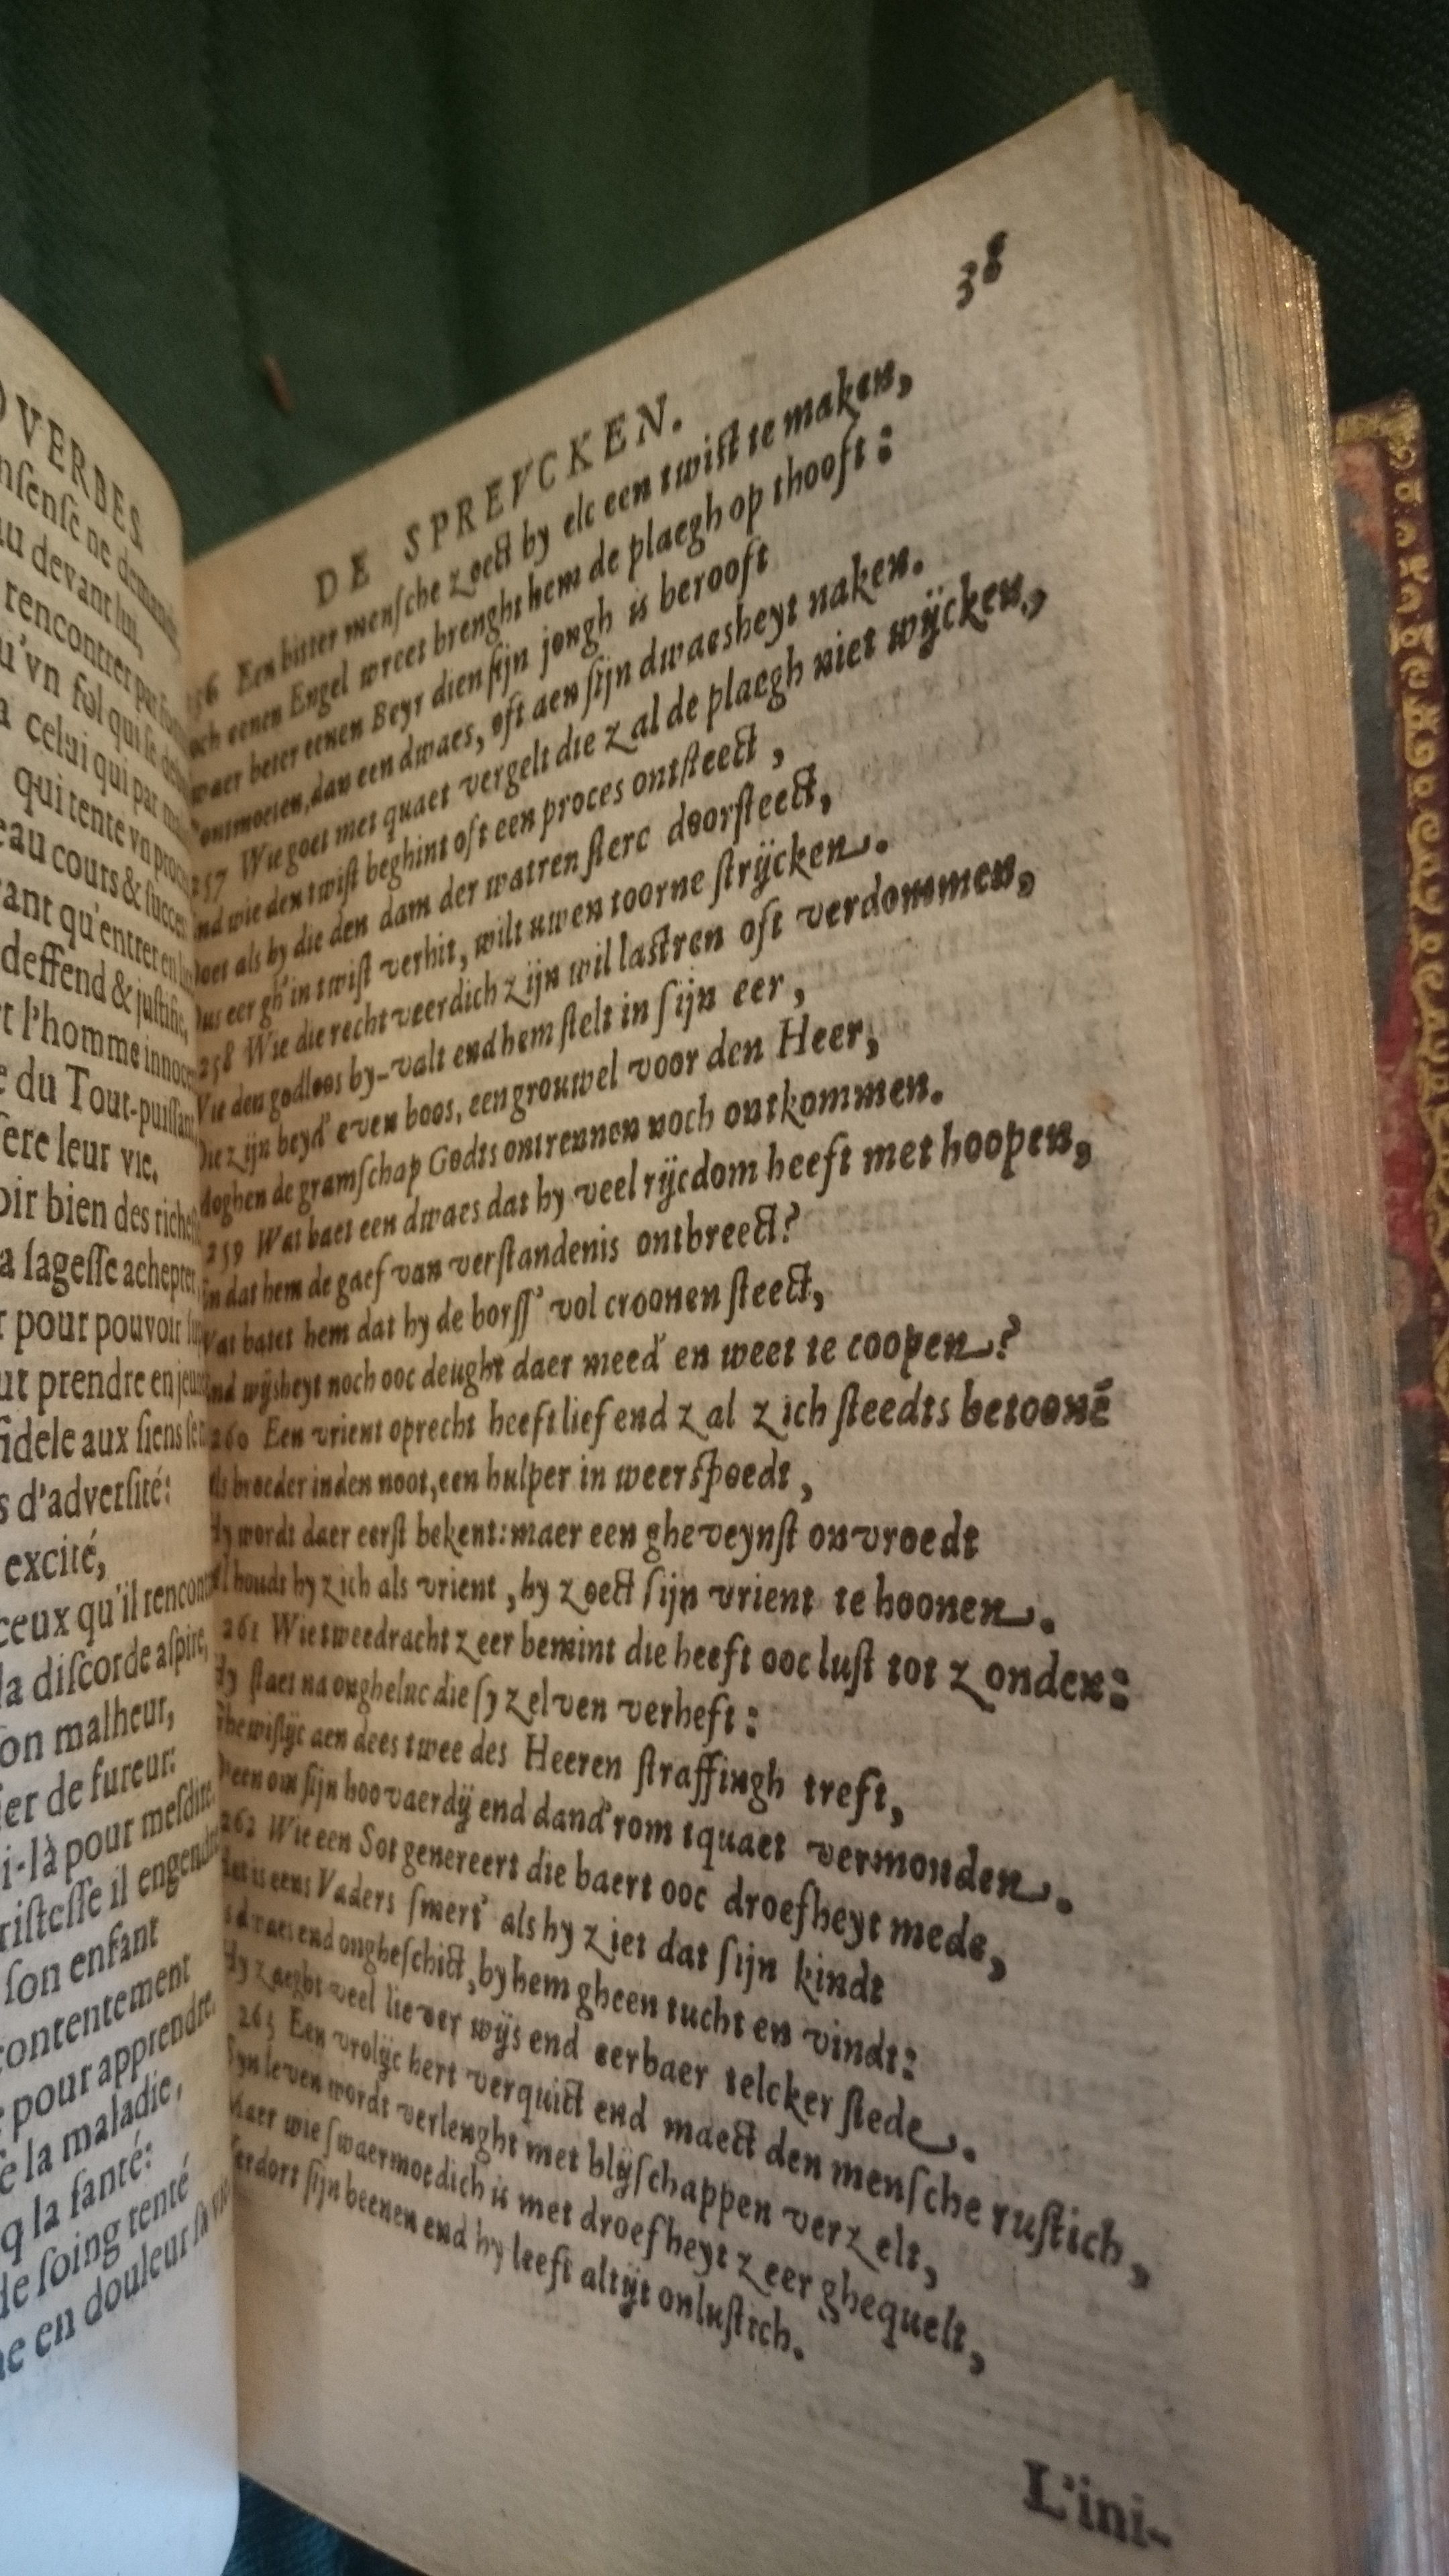 OVERBES
nſenſé ne demande
au devant lui,
rencontrer par
u'vn fol qui ſe
à celui qui par
qui tente vn
eau cours & ſucces
ant qu'entrer en
deffend & juſtifie,
t l'homme innoce
e du Tout-puiſſant
ere leur vie.
oir bien des riche
a ſageſſe achepter,
r pour pouvoir
ut prendre en jeu
fidele aux ſiens
s d'adverſité:
excité,
ceux qu'il rencont
la diſcorde aſpire,
on malheur,
ier de fureur:
i-là pour meſdire.
riſteſſe il engendre
ſon enfant
contentement
pour apprendre.
la maladie,
la ſanté:
de ſoing tenté
ne en douleur ſa
DE SPREVCKEN. 38
Een bitter menſche zoect by elc een twiſt te maken,
och eenen Engel wreet brenght hem de plaegh op thooft:
waer beter eenen Beyr dien ſijn jongh is berooft
ontmoeten, dan een dwaes, oft aen ſijn dwaesheyt naken.
257 Wie goet met quaet vergelt die zal de plaegh niet wijcken,
nd wie den twiſt beghint oft een proces ontſteect,
oet als hy die den dam der watren ſterc doorſteect,
us eer gh' in twiſt verhit, wilt uwen toorne ſtrijcken.
258 Wie die rechtveerdich zijn wil laſtren oft verdommen,
Vie den godloos by-valt end hem ſtelt in ſijn eer,
ie zijn beyd' even boos, een grouwel voor den Heer,
doghen de gramſchap Godts ontrennen noch ontkommen.
259 Wat baet een dwaes dat hy veel rijcdom heeft met hoopen,
in dat hem de gaef van verſtandenis ontbreect?
Vat batet hem dat hy de borſſ' vol croonen ſteect,
nd wijsheyt noch ooc deught daer meed' en weet te coopen?
260 Een vrient oprecht heeft lief end zal zich ſteedts betoonē
ls broeder inden noot, een hulper in weerſpoedt,
Hy wordt daer eerſt bekent: maer een gheveynſt onvroedt
Al houdt hy zich als vrient, hy zoect ſijn vrient te hoonen.
261 Wie tweedracht zeer bemint die heeft ooc luſt tot zonden:
Hy ſtaet na ongheluc die ſy zelven verheft:
ghewiſlijc aen dees twee des Heeren ſtraffingh treft,
een om ſijn hoovaerdij end dand' rom tquaet vermonden.
262 Wie een Sot genereert die baert ooc droefheyt mede,
et is eens Vaders ſmert' als hy ziet dat ſijn kindt
s dwaes end ongheſchict, by hem gheen tucht en vindt:
Hy zaeght veel liever wijs end eerbaer telcker ſtede.
263 Een vrolijc hert verquict end maect den menſche ruſtich,
Syn leven wordt verlenght met blijſchappen verzelt,
Maer wie ſwaermoedich is met droefheyt zeer ghequelt,
erdort ſijn beenen end hy leeft altijt onluſtich.
L'ini-